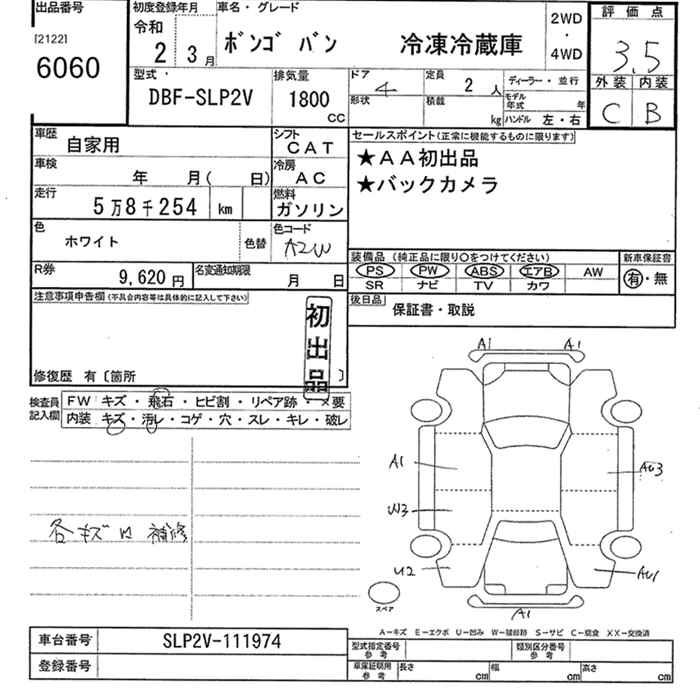 出品番号
[2122]
6060
初度登録年月
令和
2 3月
車名・グレード
ボンゴ バン 冷凍冷蔵庫
2WD
・
4WD
評価点
3.5
外装 内装
C B
型式・
DBF-SLP2V
排気量
1800
CC
ドア
4
定員
2人
形状
積載
kg
ディーラー・並行
モデル年式 年
ハンドル 左・右
車歴
自家用
シフト
CAT
車検
年 月( 日)
冷房
AC
走行
5万8千254 km
燃料
ガソリン
色
ホワイト
色替
色コード
A2W
R券
9,620円
名変通知期限
月 日
セールスポイント(正常に機能するものに限ります)
★AA初出品
★バックカメラ
装備品 (純正品に限り○をつけてください)
新車保証書
PS PW ABS エアB AW
SR ナビ TV カワ
有・無
後日品
保証書・取説
注意事項申告欄(不具合内容等は具体的に記入して下さい)
初出品
修復歴 有〔箇所 〕
検査員記入欄
FW キズ・飛石・ヒビ割・リペア跡・×要
内装 キズ・汚レ・コゲ・穴・スレ・キレ・破レ
各キズ凹 補修
A1 A1
A1
U3
U2
AU3
AU1
A1
スペア
A－キズ E－エクボ U－凹み W－補修跡 S－サビ C－腐食 XX－交換済
車台番号
SLP2V-111974
登録番号
型式指定番号
参考
類別区分番号
参考
車庫証明用
参考
長さ cm
幅 cm
高さ cm